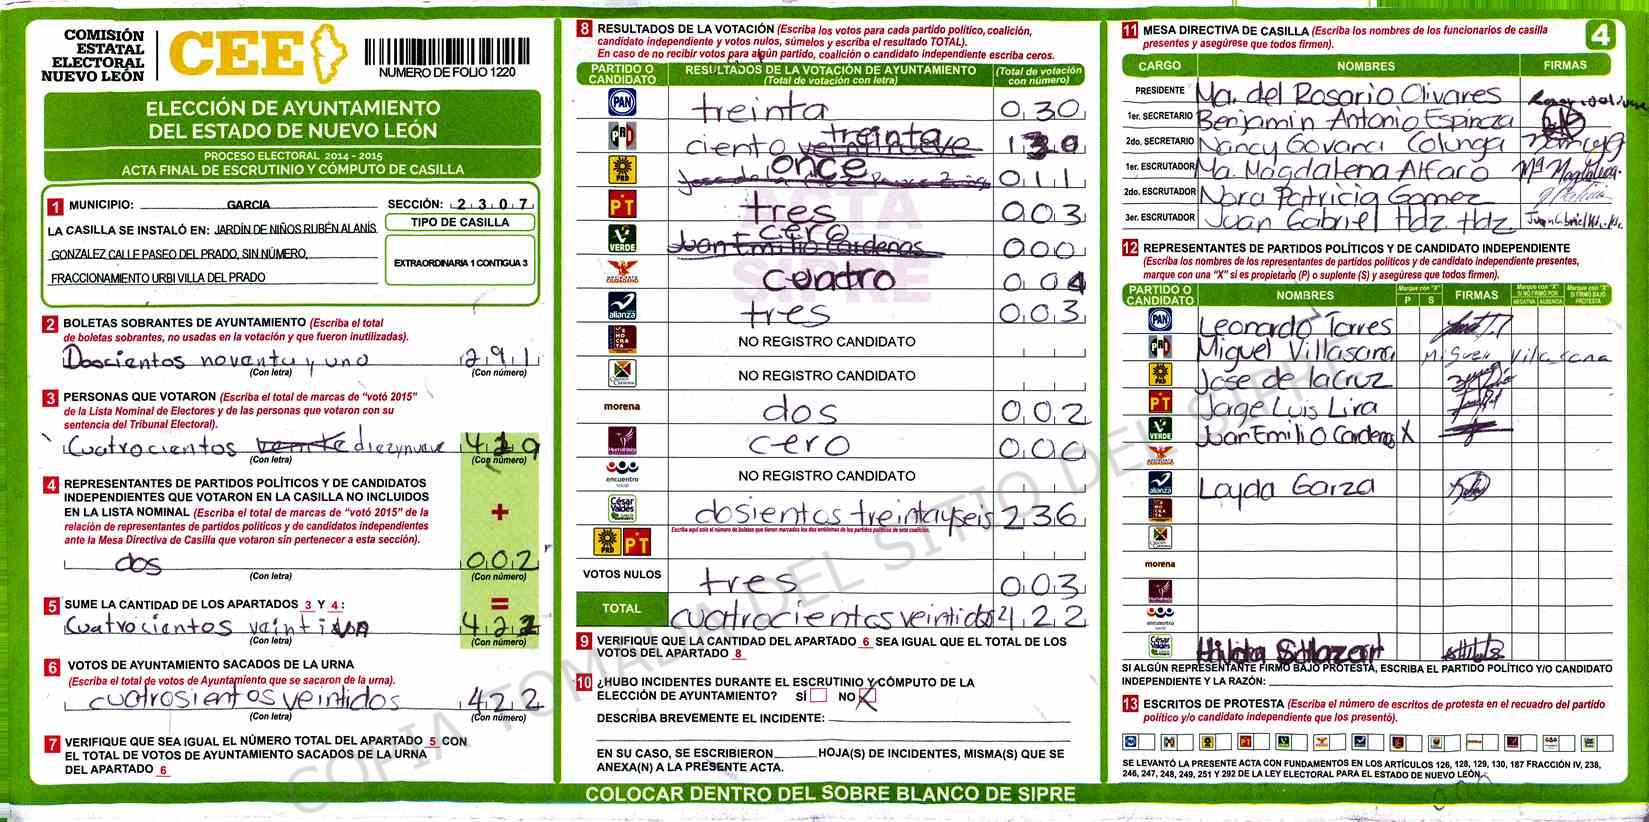 COMISIÓN
ESTATAL
ELECTORAL
NUEVO LEÓN
CEE
NUMERO DE FOLIO 1220
ELECCIÓN DE AYUNTAMIENTO
DEL ESTADO DE NUEVO LEÓN
PROCESO ELECTORAL 2014 - 2015
ACTA FINAL DE ESCRUTINIO Y CÓMPUTO DE CASILLA
1 MUNICIPIO: GARCIA SECCIÓN: 2 3 0 7
LA CASILLA SE INSTALÓ EN: JARDÍN DE NIÑOS RUBÉN ALANÍS
GONZALEZ CALLE PASEO DEL PRADO, SIN NÚMERO,
FRACCIONAMIENTO URBI VILLA DEL PRADO
TIPO DE CASILLA
EXTRAORDINARIA 1 CONTIGUA 3
2 BOLETAS SOBRANTES DE AYUNTAMIENTO (Escriba el total
de boletas sobrantes, no usadas en la votación y que fueron inutilizadas).
Doscientos noventa y uno 291
(Con letra) (Con número)
3 PERSONAS QUE VOTARON (Escriba el total de marcas de “votó 2015”
de la Lista Nominal de Electores y de las personas que votaron con su
sentencia del Tribunal Electoral).
Cuatrocientos veinte diezynueve 419
(Con letra) (Con número)
4 REPRESENTANTES DE PARTIDOS POLÍTICOS Y DE CANDIDATOS
INDEPENDIENTES QUE VOTARON EN LA CASILLA NO INCLUIDOS
EN LA LISTA NOMINAL (Escriba el total de marcas de “votó 2015” de la
relación de representantes de partidos políticos y de candidatos independientes
ante la Mesa Directiva de Casilla que votaron sin pertenecer a esta sección).
+
dos 002
(Con letra) (Con número)
=
5 SUME LA CANTIDAD DE LOS APARTADOS 3 Y 4:
Cuatrocientos 422
(Con letra) (Con número)
6 VOTOS DE AYUNTAMIENTO SACADOS DE LA URNA
(Escriba el total de votos de Ayuntamiento que se sacaron de la urna).
cuatrosientos veintidos 422
(Con letra) (Con número)
7 VERIFIQUE QUE SEA IGUAL EL NÚMERO TOTAL DEL APARTADO 5 CON
EL TOTAL DE VOTOS DE AYUNTAMIENTO SACADOS DE LA URNA
DEL APARTADO 6
8 RESULTADOS DE LA VOTACIÓN (Escriba los votos para cada partido político, coalición,
candidato independiente y votos nulos, súmelos y escriba el resultado TOTAL).
En caso de no recibir votos para algún partido, coalición o candidato independiente escriba ceros.
PARTIDO O
CANDIDATO
RESULTADOS DE LA VOTACIÓN DE AYUNTAMIENTO
(Total de votación con letra)
(Total de votación
con número)
PAN treinta 030
PRI ciento treinta 130
PRD once 011
PT tres 003
VERDE Juan Emilio Cardenas cero 000
cuatro 004
alianza tres 003
NO REGISTRO CANDIDATO
NO REGISTRO CANDIDATO
morena dos 002
Humanista cero 000
encuentro social NO REGISTRO CANDIDATO
César Valdes dosientos treintayseis 236
Escriba aquí solo el número de boletas que tienen marcados los dos emblemas de los partidos políticos de esta coalición.
PRD PT
VOTOS NULOS tres 003
TOTAL cuatrocientos veintidos 422
9 VERIFIQUE QUE LA CANTIDAD DEL APARTADO 6 SEA IGUAL QUE EL TOTAL DE LOS
VOTOS DEL APARTADO 8
10 ¿HUBO INCIDENTES DURANTE EL ESCRUTINIO Y CÓMPUTO DE LA
ELECCIÓN DE AYUNTAMIENTO? SÍ NO X
DESCRIBA BREVEMENTE EL INCIDENTE:
EN SU CASO, SE ESCRIBIERON HOJA(S) DE INCIDENTES, MISMA(S) QUE SE
ANEXA(N) A LA PRESENTE ACTA.
ACTA
SIPRE
COPIA TOMADA DEL SITIO DEL SIPRE
COLOCAR DENTRO DEL SOBRE BLANCO DE SIPRE
11 MESA DIRECTIVA DE CASILLA (Escriba los nombres de los funcionarios de casilla
presentes y asegúrese que todos firmen).
4
CARGO NOMBRES FIRMAS
PRESIDENTE Ma. del Rosario Olivares
1er. SECRETARIO Benjamin Antonio Espinoza
2do. SECRETARIO Nancy Govana Colunga
1er. ESCRUTADOR Ma. Magdalena Alfaro Mª Magdalena
2do. ESCRUTADOR Nora Patricia Gomez
3er. ESCRUTADOR Juan Gabriel Hdz. Hdz
12 REPRESENTANTES DE PARTIDOS POLÍTICOS Y DE CANDIDATO INDEPENDIENTE
(Escriba los nombres de los representantes de partidos políticos y de candidato independiente presentes,
marque con una “X” si es propietario (P) o suplente (S) y asegúrese que todos firmen).
PARTIDO O
CANDIDATO
NOMBRES
Marque con “X”
P S
FIRMAS
Marque con “X”
SI NO FIRMÓ POR
NEGATIVA AUSENCIA
Marque con “X”
SI FIRMÓ BAJO
PROTESTA
PAN Leonardo Torres
PRI Miguel Villasana Miguel Villasana
PRD Jose de lacruz
PT Jorge Luis Lira
VERDE Juan Emilio Cardenas X
alianza Layda Garza
morena
Humanista
encuentro social
César Valdes Hilda Salazar
SI ALGÚN REPRESENTANTE FIRMO BAJO PROTESTA, ESCRIBA EL PARTIDO POLÍTICO Y/O CANDIDATO
INDEPENDIENTE Y LA RAZÓN:
13 ESCRITOS DE PROTESTA (Escriba el número de escritos de protesta en el recuadro del partido
político y/o candidato independiente que los presentó).
SE LEVANTÓ LA PRESENTE ACTA CON FUNDAMENTOS EN LOS ARTÍCULOS 126, 128, 129, 130, 187 FRACCIÓN IV, 238,
246, 247, 248, 249, 251 Y 292 DE LA LEY ELECTORAL PARA EL ESTADO DE NUEVO LEÓN.